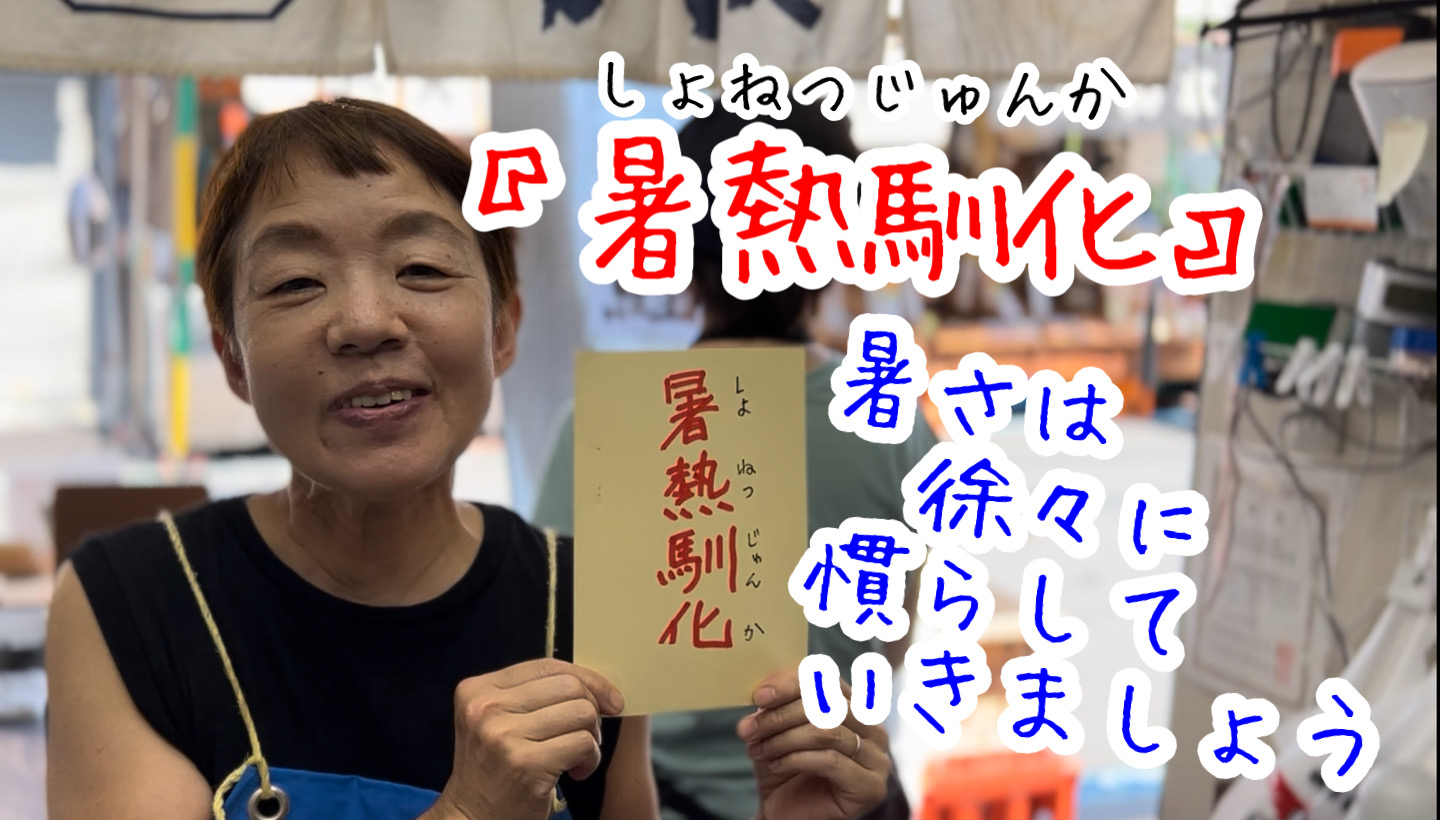 しょねつじゅんか
『暑熱馴化』
暑さは
徐々に
慣らして
いきましょう
しょねつじゅんか
暑熱馴化